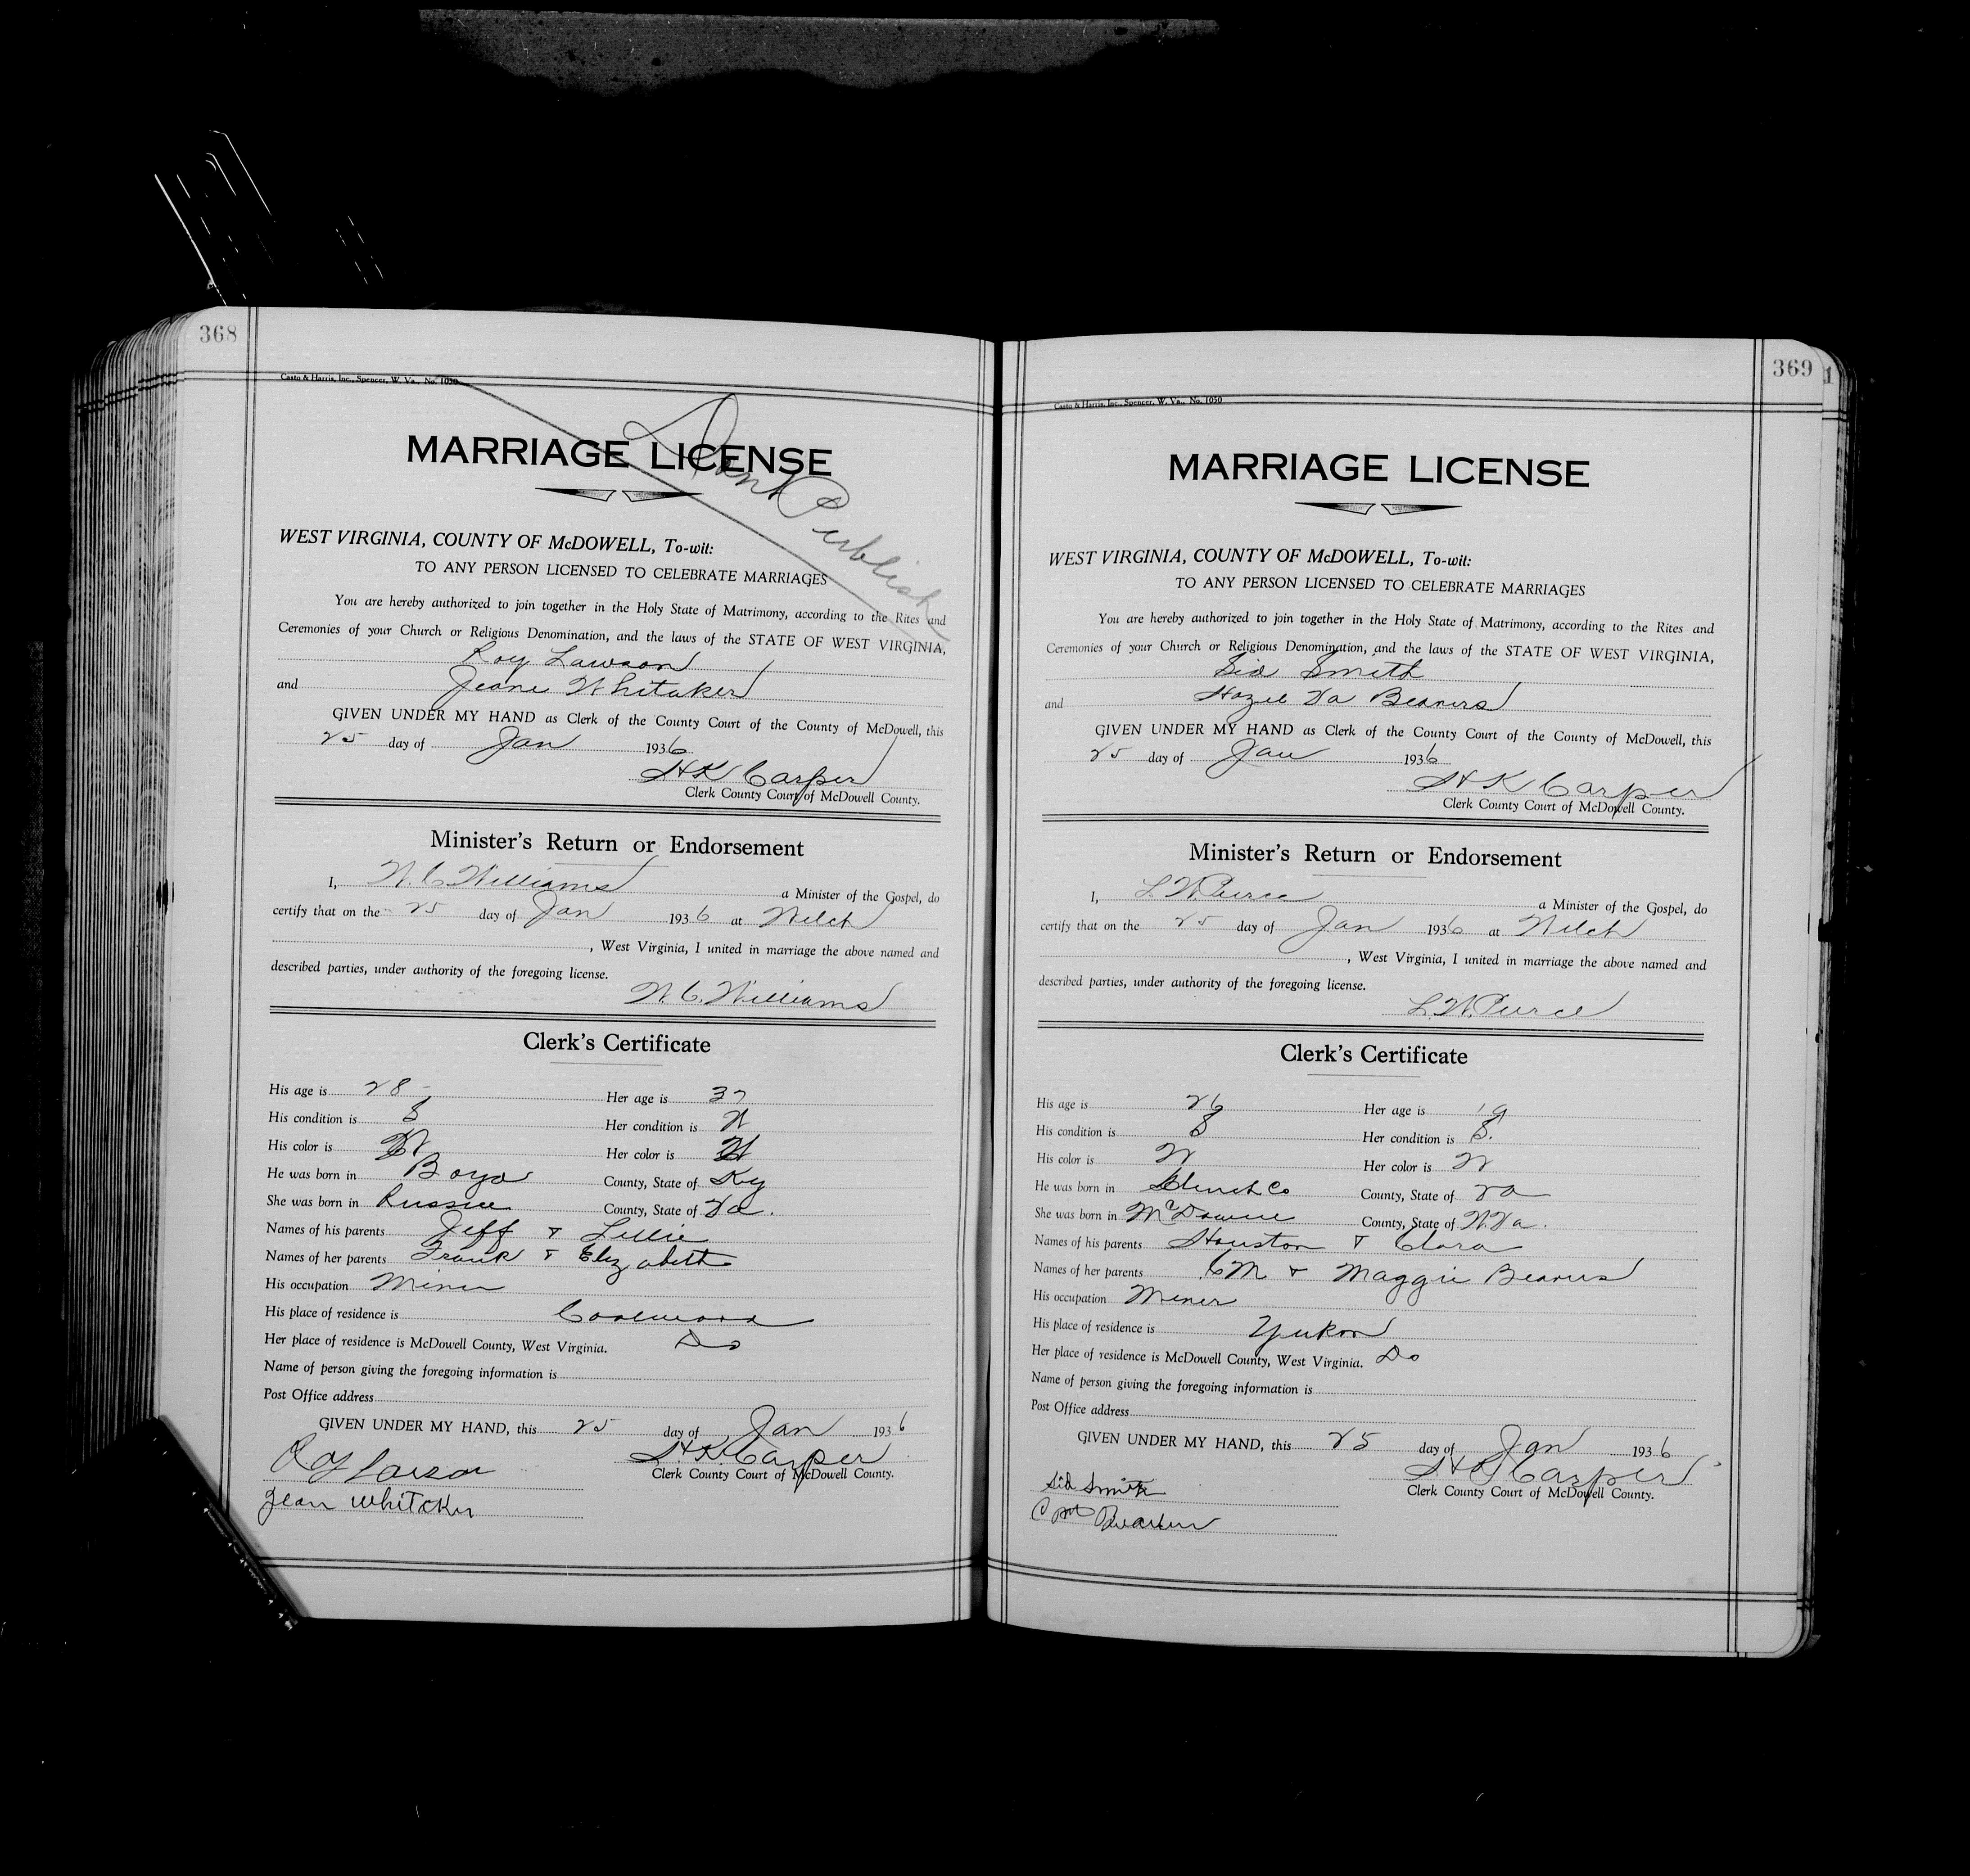 368
Casto & Harris, Inc., Spencer, W. Va., No. 1050
Dont Publish
MARRIAGE LICENSE
WEST VIRGINIA, COUNTY OF McDOWELL, To-wit:
TO ANY PERSON LICENSED TO CELEBRATE MARRIAGES
You are hereby authorized to join together in the Holy State of Matrimony, according to the Rites and
Ceremonies of your Church or Religious Denomination, and the laws of the STATE OF WEST VIRGINIA,
Roy Lawson
and Jeane Whitaker
GIVEN UNDER MY HAND as Clerk of the County Court of the County of McDowell, this
25 day of Jan 1936
H K Carper
Clerk County Court of McDowell County.
Minister's Return or Endorsement
I, W. C. Williams a Minister of the Gospel, do
certify that on the 25 day of Jan 1936 at Welch
, West Virginia, I united in marriage the above named and
described parties, under authority of the foregoing license.
W. C. Williams
Clerk's Certificate
His age is 28 Her age is 37
His condition is S Her condition is W
His color is W Her color is W
He was born in Boyd County, State of Ky
She was born in Russell County, State of Va.
Names of his parents Jeff & Lillie
Names of her parents Frank & Elizabeth
His occupation Miner
His place of residence is Coalwood
Her place of residence is McDowell County, West Virginia. Do
Name of person giving the foregoing information is
Post Office address
GIVEN UNDER MY HAND, this 25 day of Jan 1936
H. K. Carper
Clerk County Court of McDowell County.
Roy Lawson
Jean Whitaker
369
1
Casto & Harris, Inc., Spencer, W. Va., No. 1050
MARRIAGE LICENSE
WEST VIRGINIA, COUNTY OF McDOWELL, To-wit:
TO ANY PERSON LICENSED TO CELEBRATE MARRIAGES
You are hereby authorized to join together in the Holy State of Matrimony, according to the Rites and
Ceremonies of your Church or Religious Denomination, and the laws of the STATE OF WEST VIRGINIA,
Sid Smith
and Hazel Va Beavers
GIVEN UNDER MY HAND as Clerk of the County Court of the County of McDowell, this
25 day of Jan 1936
H K Carper
Clerk County Court of McDowell County.
Minister's Return or Endorsement
I, L. W. Pierce a Minister of the Gospel, do
certify that on the 25 day of Jan 1936 at Welch
, West Virginia, I united in marriage the above named and
described parties, under authority of the foregoing license.
L. W. Pierce
Clerk's Certificate
His age is 26 Her age is 19
His condition is S Her condition is S.
His color is W Her color is W
He was born in Co County, State of Va
She was born in McDowell County, State of W. Va.
Names of his parents Houston & Clara
Names of her parents C M & Maggie Beavers
His occupation Miner
His place of residence is Yukon
Her place of residence is McDowell County, West Virginia. Do
Name of person giving the foregoing information is
Post Office address
GIVEN UNDER MY HAND, this 25 day of Jan 1936
H. K. Carper
Clerk County Court of McDowell County.
Sid Smith
C M Beavers